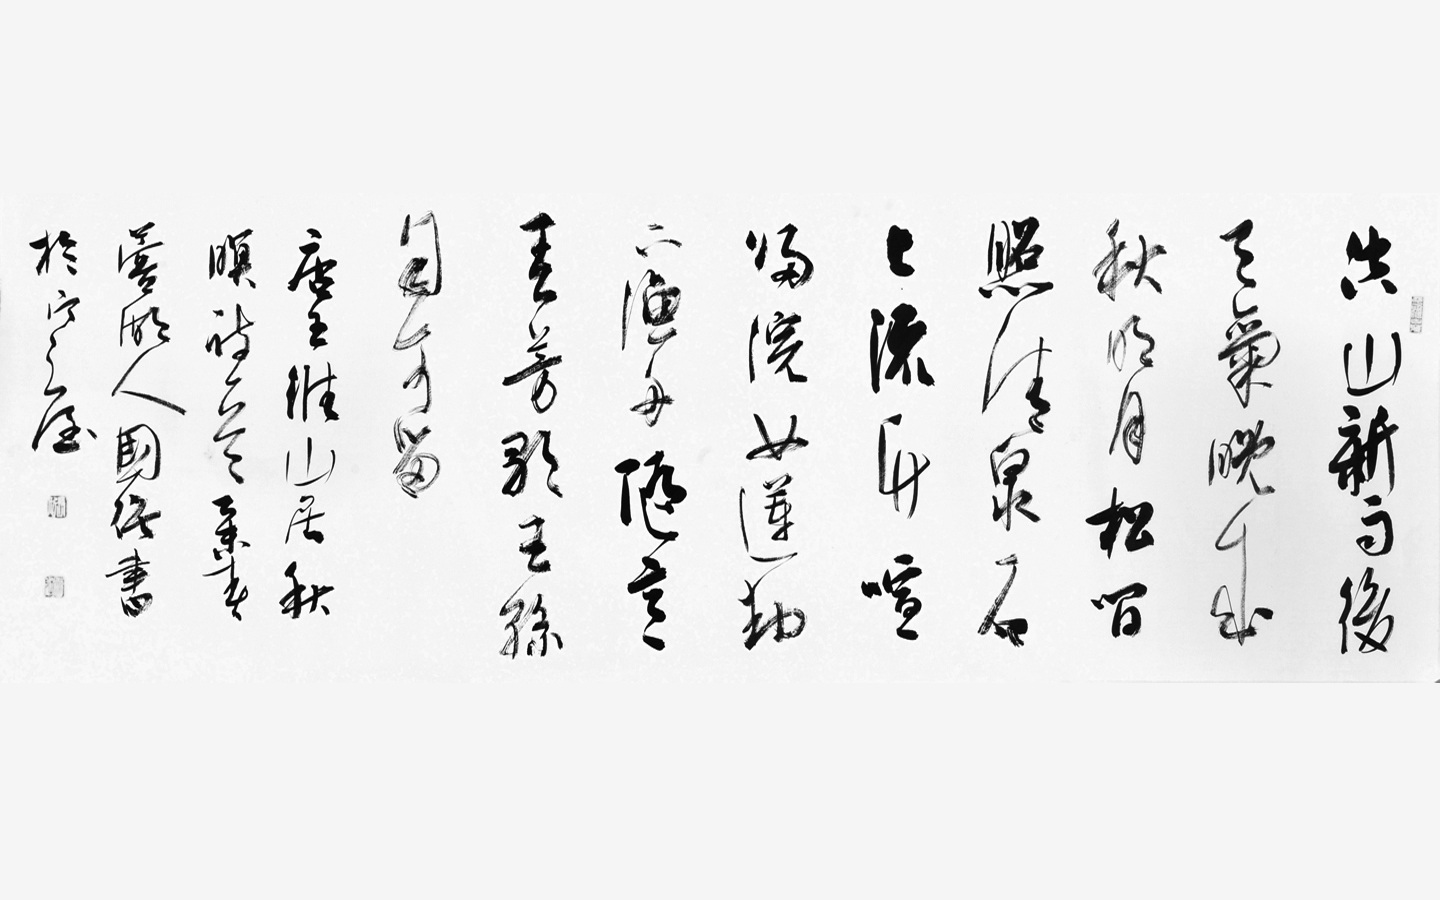 空山新雨後
天氣晚來
秋明月松間
照清泉石
上流竹喧
歸浣女蓮動
下漁舟隨意
春芳歇王孫
自可留
唐王維山居秋
暝詩一首 春
湖人國書
於